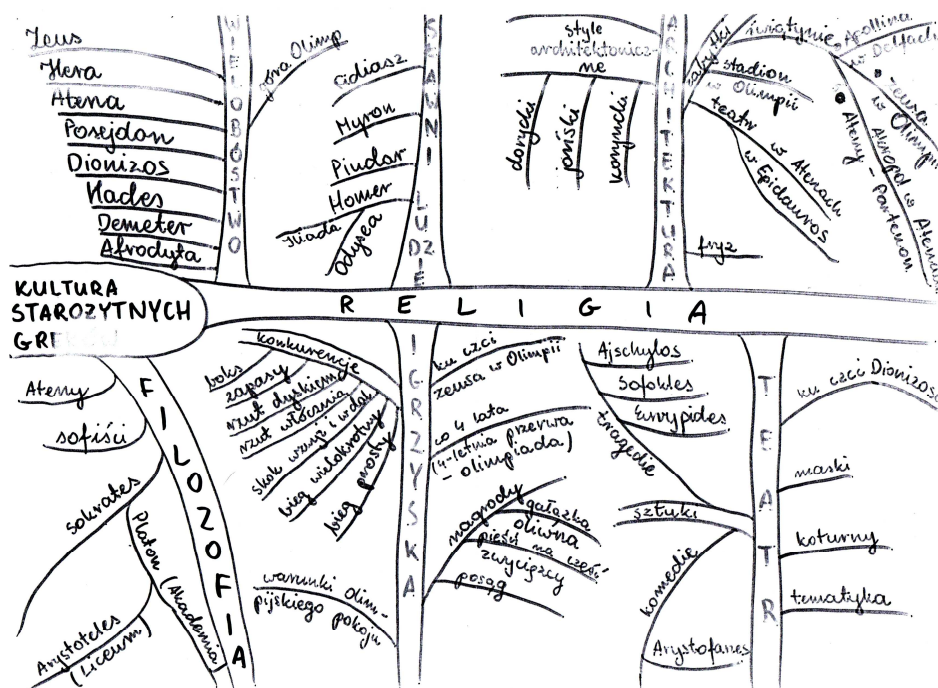 KULTURA
STAROŻYTNYCH
GREKÓW
RELIGIA
WIELOBÓSTWO
Zeus
Hera
Atena
Posejdon
Dionizos
Hades
Demeter
Afrodyta
góra Olimp
SŁAWNI LUDZIE
Fidiasz
Myron
Pindar
Homer
Iliada
Odysea
ARCHITEKTURA
style
architektonicz-
ne
dorycki
joński
koryncki
zabytki
świątynie
Apollina
w Delfach
Zeusa
w Olimpii
Akropol w Atenach
Ateny - Partenon
stadion
w Olimpii
teatr
w Atenach
w Epidauros
fryz
FILOZOFIA
Ateny
sofiści
Sokrates
Platon (Akademia)
Arystoteles
(Liceum)
IGRZYSKA
konkurencje
boks
zapasy
rzut dyskiem
rzut włócznią
skok wzwyż i w dal
bieg wielokrotny
bieg prosty
warunki olim-
pijskiego pokoju
ku czci
zeusa w Olimpii
co 4 lata
(4-letnia przerwa
- olimpiada)
nagrody
gałązka
oliwna
pieśń na cześć
zwycięzcy
posąg
TEATR
sztuki
tragedie
Ajschylos
Sofokles
Eurypides
komedie
Arystofanes
ku czci Dionizosa
maski
koturny
tematyka